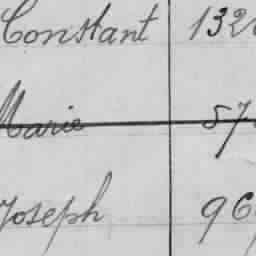 Constant 132
Marie 57
Joseph 96